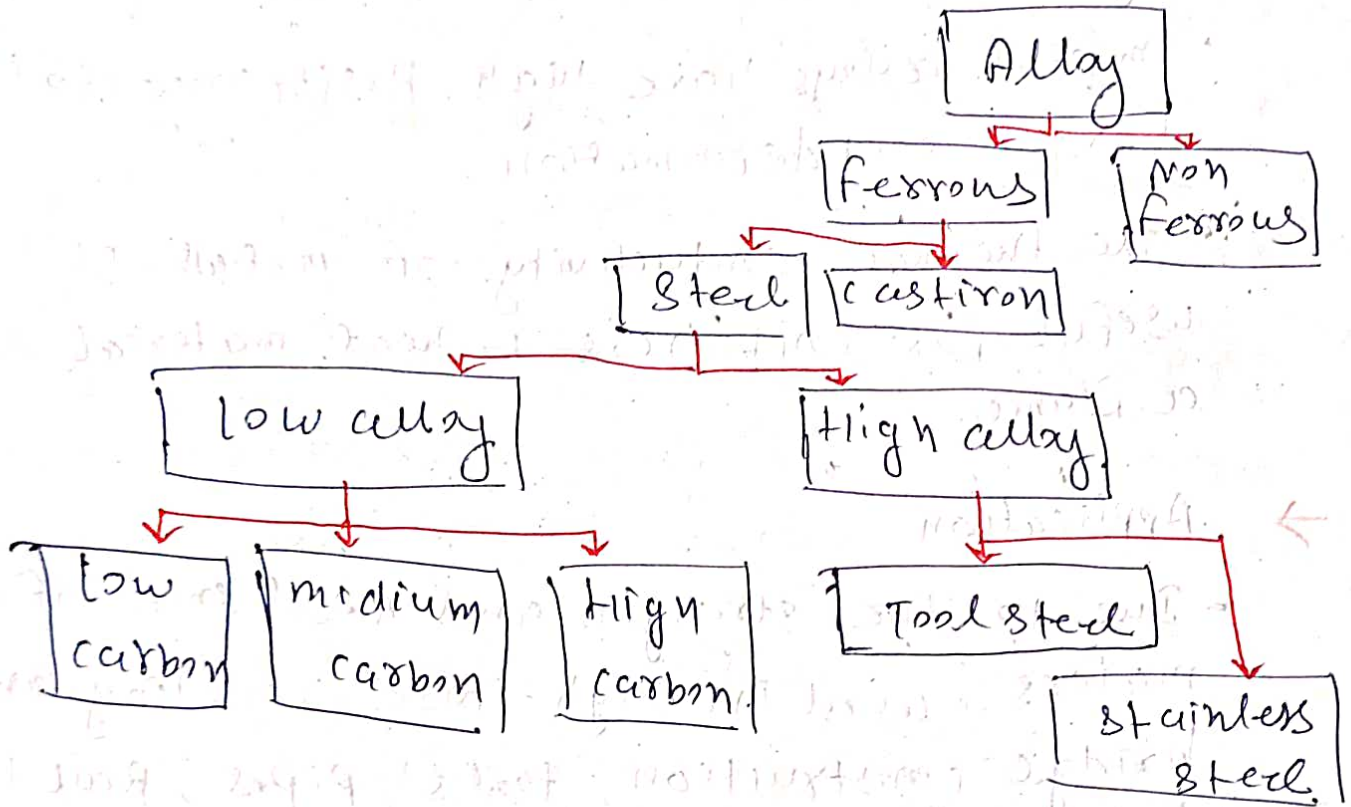 Alloy
Ferrous
Non
Ferrous
Steel
Castiron
low alloy
High alloy
low
carbon
midium
carbon
High
carbon
Tool steel
stainless
steel